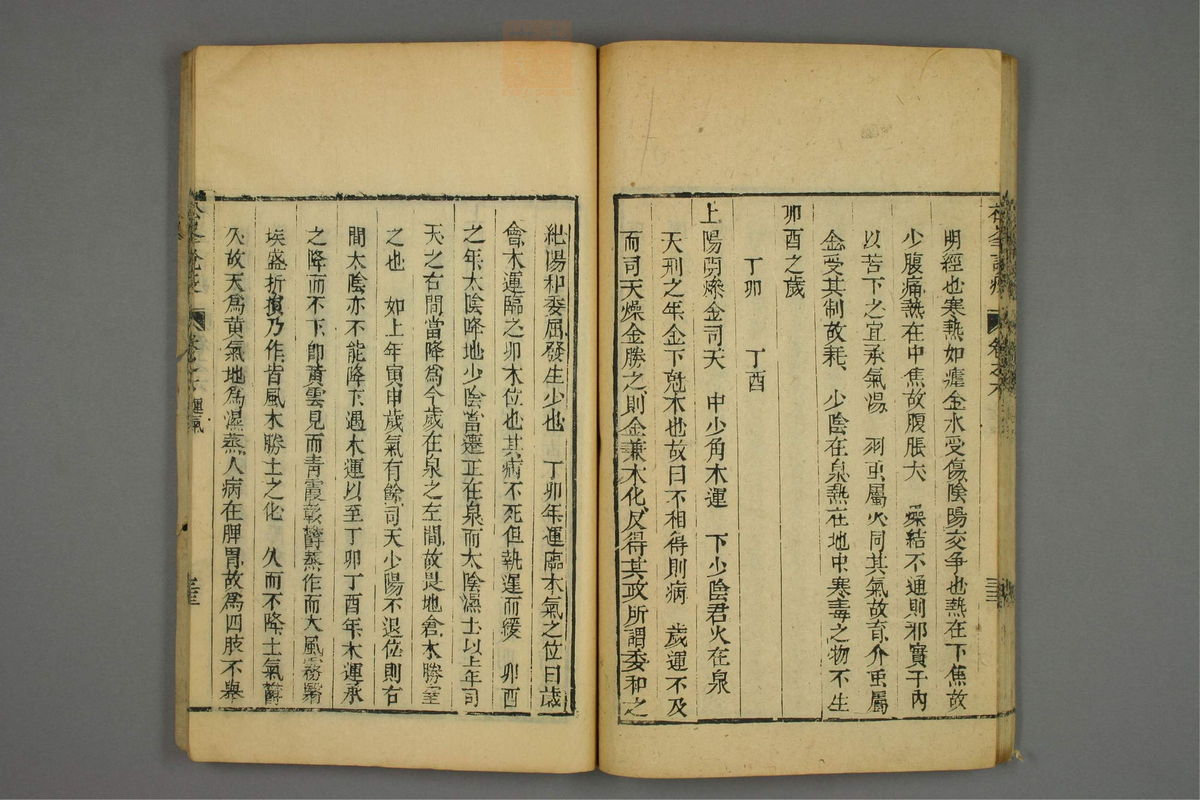 明經也寒熱如瘧金水受傷陰陽交爭也熱在下焦故
少腹痛熱在中焦故腹脹大 燥結不通則邪實于內
以苦下之宜承氣湯 羽虫屬火同其氣故育介虫屬
金受其制故耗 少陰在泉熱在地中寒毒之物不生
卯酉之歲
丁卯 丁酉
上陽明燥金司天 中少角木運 下少陰君火在泉
天刑之年金下尅木也故曰不相得則病 歲運不及
而司天燥金勝之則金兼木化反得其政所謂委和之
紀陽和委屈發生少也 丁卯年運臨木氣之位曰歲
會木運臨之卯木位也其病不死但執遲而緩 卯酉
之年太陰降地少陰當遷正在泉而太陰濕土以上年司
天之右間當降為今歲在泉之左間故畏地倉木勝窒
之也 如上年寅申歲氣有餘司天少陽不退位則右
間太陰亦不能降下遇木運以至丁卯丁酉年木運承
之降而不下即黃雲見而青霞彰欝蒸作而大風霧翳
埃盛折損乃作皆風木勝土之化 久而不降土氣欝
久故天為黃氣地為濕蒸人病在脾胃故為四肢不舉
卷之六 運氣
三三
卷之六